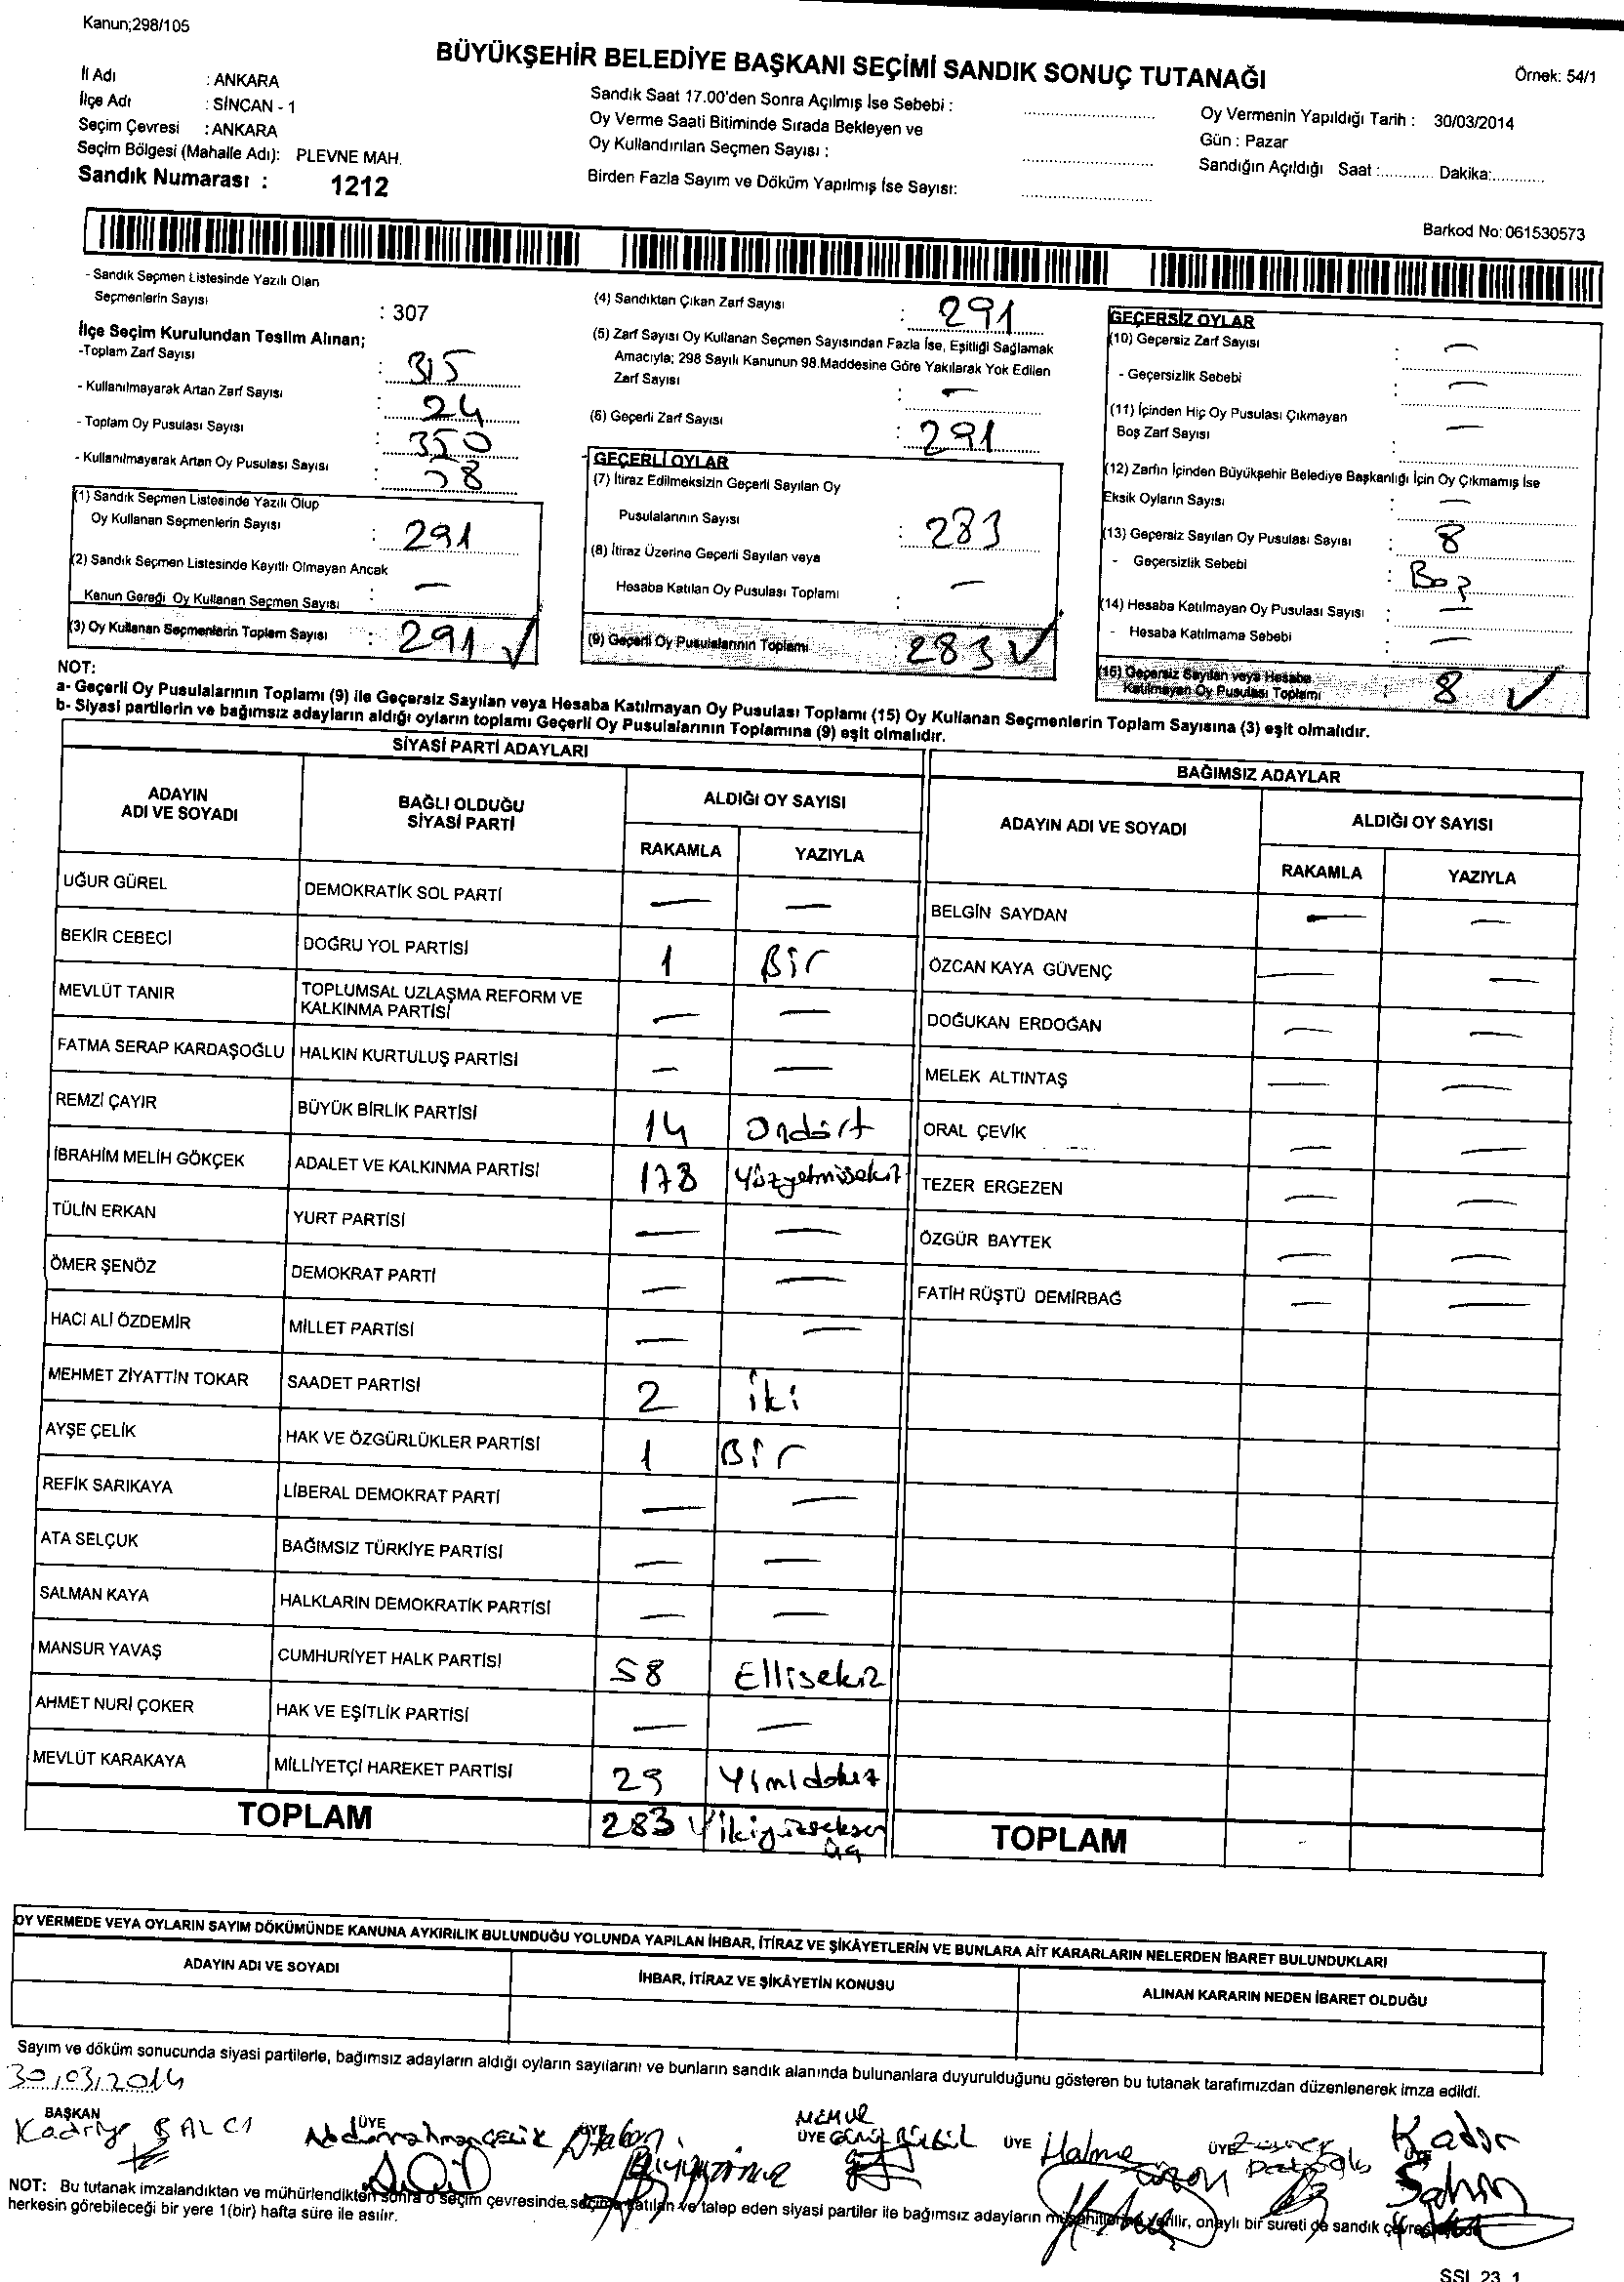 Kanun;298/105
BÜYÜKŞEHİR BELEDİYE BAŞKANI SEÇİMİ SANDIK SONUÇ TUTANAĞI
Örnek: 54/1
İl Adı : ANKARA
İlçe Adı : SİNCAN - 1
Seçim Çevresi : ANKARA
Seçim Bölgesi (Mahalle Adı): PLEVNE MAH.
Sandık Numarası : 1212
Sandık Saat 17.00'den Sonra Açılmış İse Sebebi :
Oy Verme Saati Bitiminde Sırada Bekleyen ve
Oy Kullandırılan Seçmen Sayısı :
Birden Fazla Sayım ve Döküm Yapılmış İse Sayısı:
Oy Vermenin Yapıldığı Tarih : 30/03/2014
Gün : Pazar
Sandığın Açıldığı Saat :............ Dakika:............
Barkod No: 061530573
- Sandık Seçmen Listesinde Yazılı Olan
Seçmenlerin Sayısı : 307
İlçe Seçim Kurulundan Teslim Alınan;
-Toplam Zarf Sayısı : 315
- Kullanılmayarak Artan Zarf Sayısı : 24
- Toplam Oy Pusulası Sayısı : 350
- Kullanılmayarak Artan Oy Pusulası Sayısı :
(1) Sandık Seçmen Listesinde Yazılı Olup
Oy Kullanan Seçmenlerin Sayısı : 291
(2) Sandık Seçmen Listesinde Kayıtlı Olmayan Ancak
Kanun Gereği Oy Kullanan Seçmen Sayısı : —
(3) Oy Kullanan Seçmenlerin Toplam Sayısı : 291 ✓
(4) Sandıktan Çıkan Zarf Sayısı : 291
(5) Zarf Sayısı Oy Kullanan Seçmen Sayısından Fazla İse, Eşitliği Sağlamak
Amacıyla; 298 Sayılı Kanunun 98.Maddesine Göre Yakılarak Yok Edilen
Zarf Sayısı : —
(6) Geçerli Zarf Sayısı : 291
GEÇERLİ OYLAR
(7) İtiraz Edilmeksizin Geçerli Sayılan Oy
Pusulalarının Sayısı : 283
(8) İtiraz Üzerine Geçerli Sayılan veya
Hesaba Katılan Oy Pusulası Toplamı : —
(9) Geçerli Oy Pusulalarının Toplamı : 283 ✓
GEÇERSİZ OYLAR
(10) Geçersiz Zarf Sayısı : —
- Geçersizlik Sebebi : —
(11) İçinden Hiç Oy Pusulası Çıkmayan
Boş Zarf Sayısı : —
(12) Zarfın İçinden Büyükşehir Belediye Başkanlığı İçin Oy Çıkmamış İse
Eksik Oyların Sayısı : —
(13) Geçersiz Sayılan Oy Pusulası Sayısı : 8
- Geçersizlik Sebebi : Boş
(14) Hesaba Katılmayan Oy Pusulası Sayısı : —
- Hesaba Katılmama Sebebi : —
(15) Geçersiz Sayılan veya Hesaba
Katılmayan Oy Pusulası Toplamı : 8 ✓
NOT:
a- Geçerli Oy Pusulalarının Toplamı (9) ile Geçersiz Sayılan veya Hesaba Katılmayan Oy Pusulası Toplamı (15) Oy Kullanan Seçmenlerin Toplam Sayısına (3) eşit olmalıdır.
b- Siyasi partilerin ve bağımsız adayların aldığı oyların toplamı Geçerli Oy Pusulalarının Toplamına (9) eşit olmalıdır.
SİYASİ PARTİ ADAYLARI
ADAYIN
ADI VE SOYADI
BAĞLI OLDUĞU
SİYASİ PARTİ
ALDIĞI OY SAYISI
RAKAMLA YAZIYLA
UĞUR GÜREL DEMOKRATİK SOL PARTİ — —
BEKİR CEBECİ DOĞRU YOL PARTİSİ 1 Bir
MEVLÜT TANIR TOPLUMSAL UZLAŞMA REFORM VE
KALKINMA PARTİSİ — —
FATMA SERAP KARDAŞOĞLU HALKIN KURTULUŞ PARTİSİ — —
REMZİ ÇAYIR BÜYÜK BİRLİK PARTİSİ 14 Ondört
İBRAHİM MELİH GÖKÇEK ADALET VE KALKINMA PARTİSİ 178 Yüzyetmissekiz
TÜLİN ERKAN YURT PARTİSİ — —
ÖMER ŞENÖZ DEMOKRAT PARTİ — —
HACI ALİ ÖZDEMİR MİLLET PARTİSİ — —
MEHMET ZİYATTİN TOKAR SAADET PARTİSİ 2 iki
AYŞE ÇELİK HAK VE ÖZGÜRLÜKLER PARTİSİ 1 Bir
REFİK SARIKAYA LİBERAL DEMOKRAT PARTİ — —
ATA SELÇUK BAĞIMSIZ TÜRKİYE PARTİSİ — —
SALMAN KAYA HALKLARIN DEMOKRATİK PARTİSİ — —
MANSUR YAVAŞ CUMHURİYET HALK PARTİSİ 58 Ellisekiz
AHMET NURİ ÇOKER HAK VE EŞİTLİK PARTİSİ — —
MEVLÜT KARAKAYA MİLLİYETÇİ HAREKET PARTİSİ 29 Yimidokuz
TOPLAM 283 ✓ ikiyüzseksen
üç
BAĞIMSIZ ADAYLAR
ADAYIN ADI VE SOYADI
ALDIĞI OY SAYISI
RAKAMLA YAZIYLA
BELGİN SAYDAN — —
ÖZCAN KAYA GÜVENÇ — —
DOĞUKAN ERDOĞAN — —
MELEK ALTINTAŞ — —
ORAL ÇEVİK — —
TEZER ERGEZEN — —
ÖZGÜR BAYTEK — —
FATİH RÜŞTÜ DEMİRBAĞ — —
TOPLAM -
OY VERMEDE VEYA OYLARIN SAYIM DÖKÜMÜNDE KANUNA AYKIRILIK BULUNDUĞU YOLUNDA YAPILAN İHBAR, İTİRAZ VE ŞİKÂYETLERİN VE BUNLARA AİT KARARLARIN NELERDEN İBARET BULUNDUKLARI
ADAYIN ADI VE SOYADI
İHBAR, İTİRAZ VE ŞİKÂYETİN KONUSU
ALINAN KARARIN NEDEN İBARET OLDUĞU
Sayım ve döküm sonucunda siyasi partilerle, bağımsız adayların aldığı oyların sayılarını ve bunların sandık alanında bulunanlara duyurulduğunu gösteren bu tutanak tarafımızdan düzenlenerek imza edildi.
30.03.2014
BAŞKAN
Kadriye BALCI
ÜYE
Abdurrahman ÇELİK
MEMUR
ÜYE
ÜYE Halime
ÜYE
Kadir
Şahin
NOT: Bu tutanak imzalandıktan ve mühürlendikten sonra o seçim çevresinde seçime katılan ve talep eden siyasi partiler ile bağımsız adayların müşahitlerine verilir, onaylı bir sureti de sandık çevresinde
herkesin görebileceği bir yere 1(bir) hafta süre ile asılır.
SSI 23 1